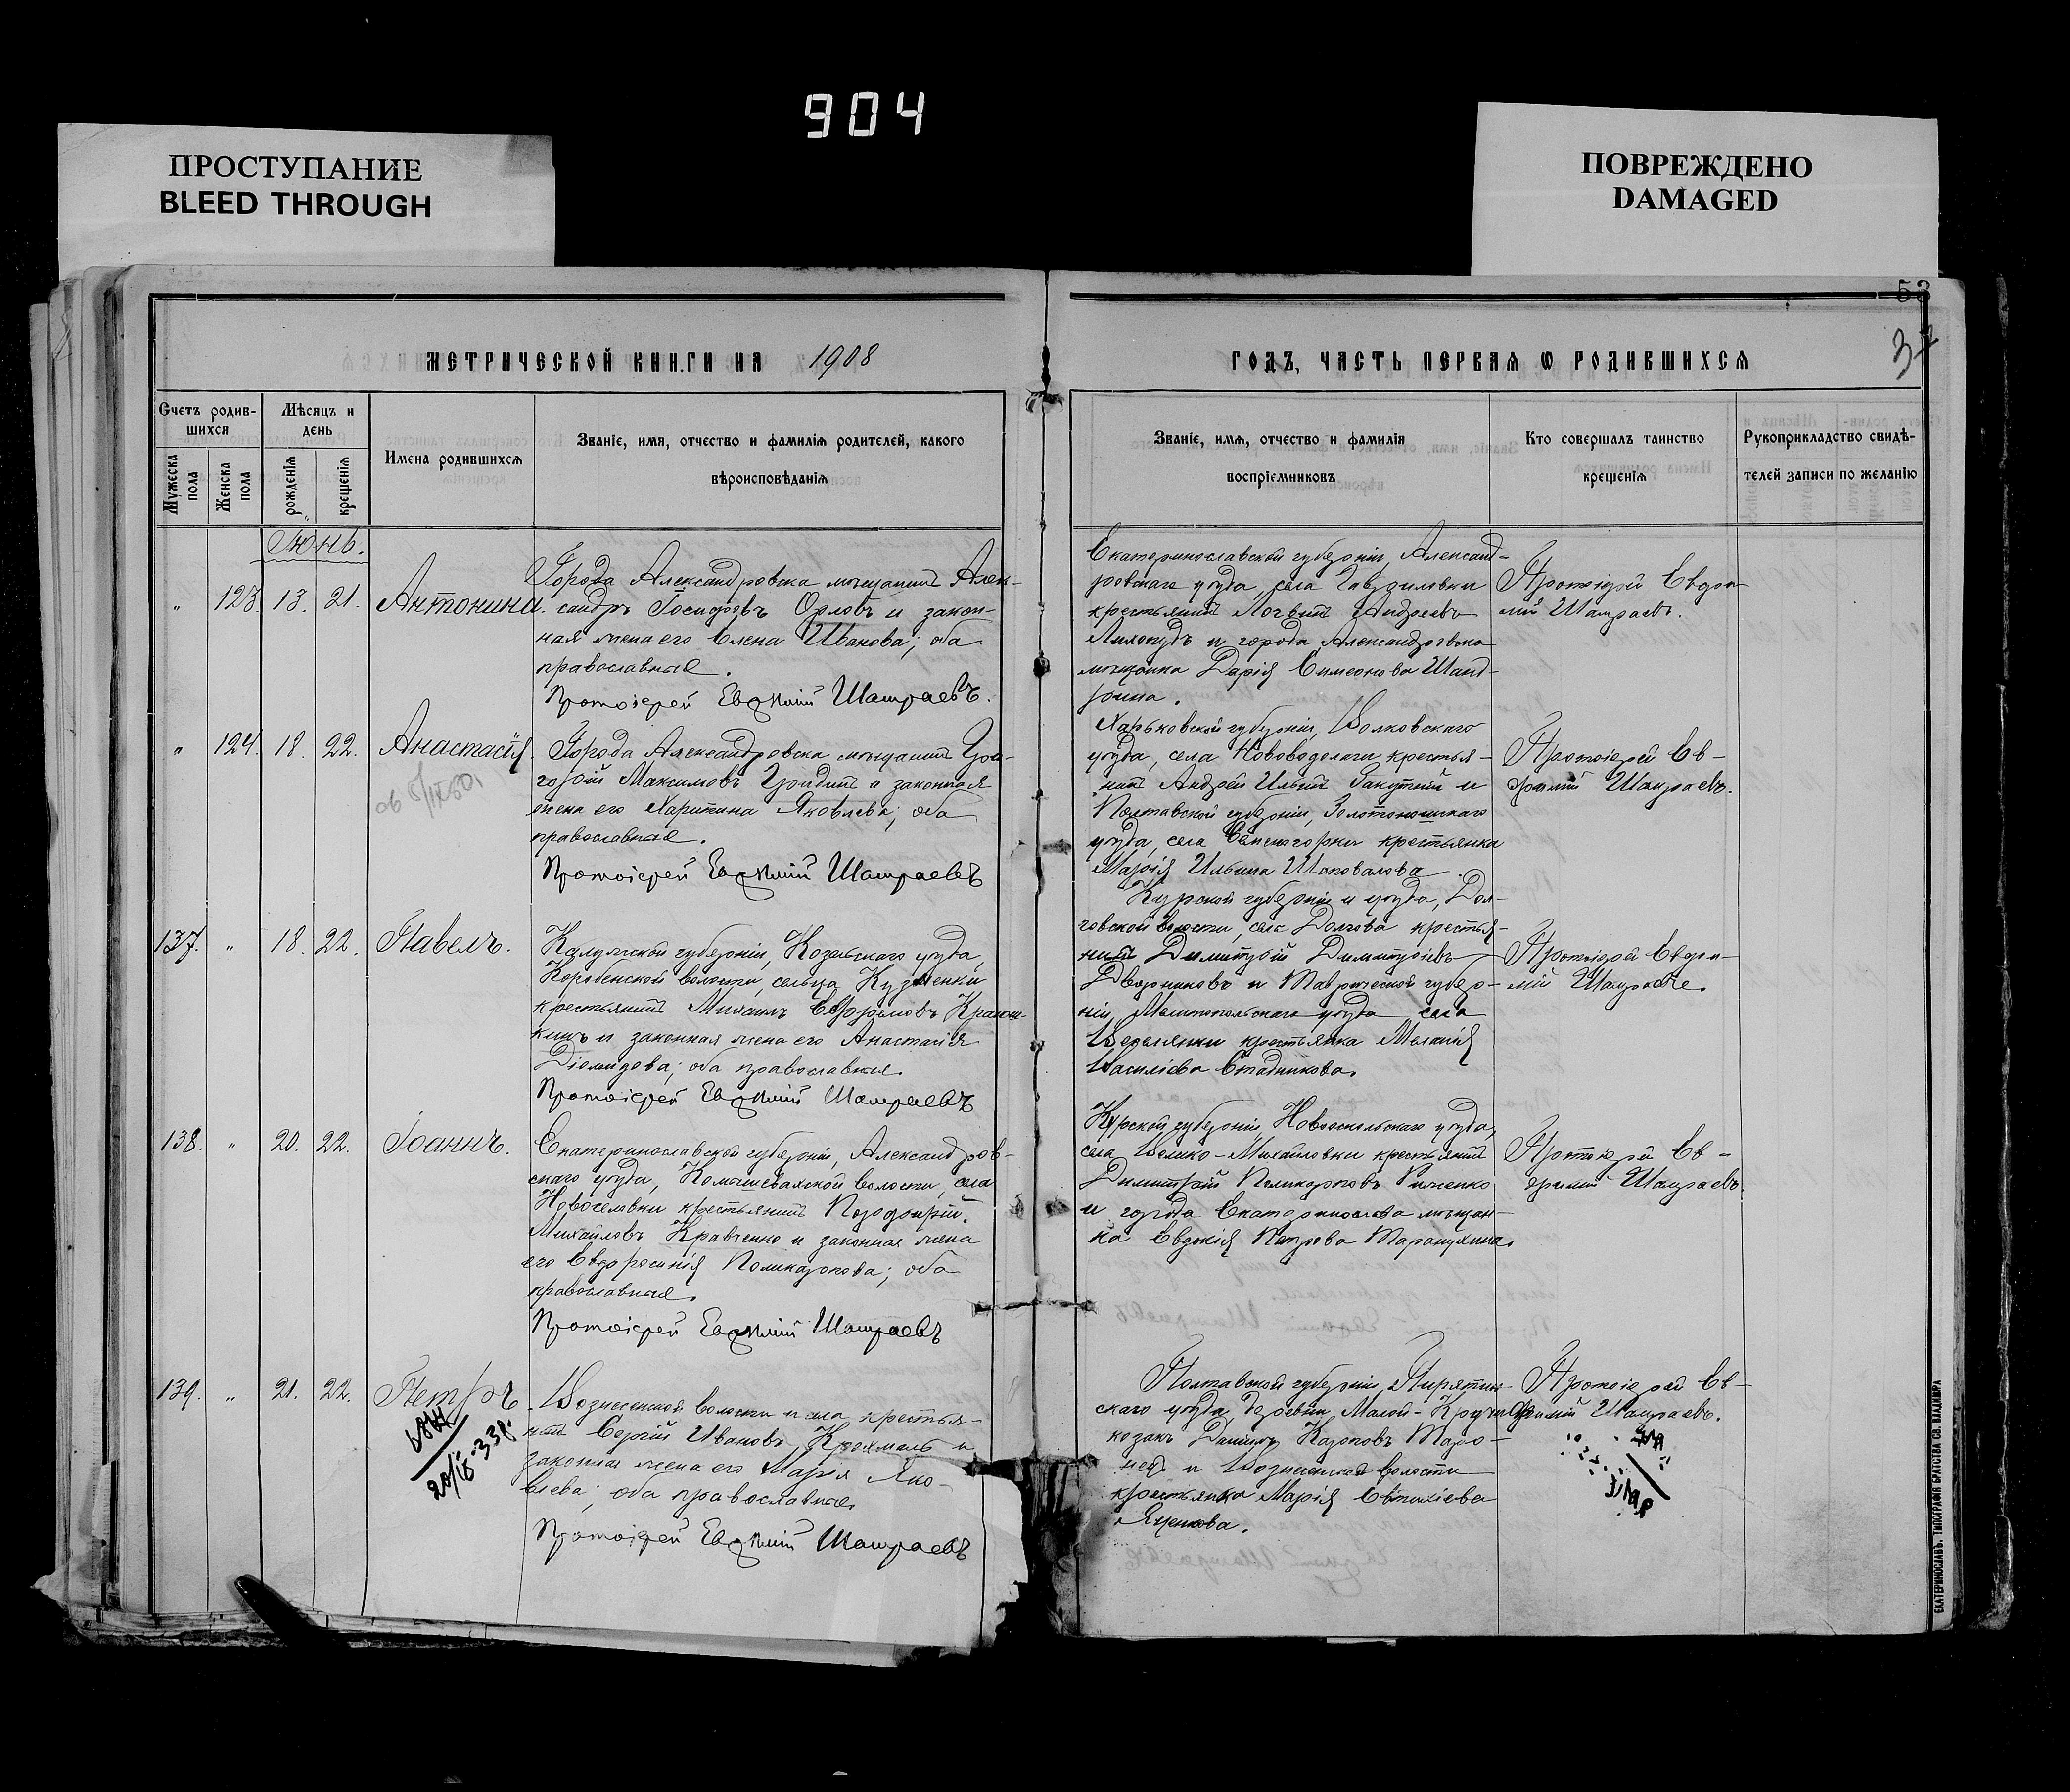 904
ПРОСТУПАНИЕ
BLEED THROUGH
ПОВРЕЖДЕНО
DAMAGED
53
МЕТРИЧЕСКОЙ КНИГИ НА 1908
ГОДЪ, ЧАСТЬ ПЕРВАЯ Ѡ РОДИВШИХСЯ
Счетъ родив-
шихся
Мѣсяцъ и
день
Мужеска
пола
Женска
пола
рожденія
крещенія
Имена родившихся
Званіе, имя, отчество и фамилія родителей, какого
вѣроисповѣданія
Званіе, имя, отчество и фамилія
воспріемниковъ
Кто совершалъ таинство
крещенія
Рукоприкладство свидѣ-
телей записи по желанію
Іюнь.
" 123. 13. 21. Антонина.
Города Александровска мѣщанинъ Алек-
сандръ Іосифовъ Орловъ и закон-
ная жена его Елена Иванова; оба
православные.
Протоіерей Евѳимій Шамраевъ.
Екатеринославской губерніи, Александ-
ровскаго уѣзда, села
крестьянинъ Андреевъ
и города Александровска
мѣщанка Дарія Симеонова
Протоіерей Евѳи-
мій Шамраевъ.
" 124. 18. 22. Анастасія.
Города Александровска мѣщанинъ Гри-
горій Максимовъ Гридинъ и законная
жена его Харитина Яковлева; оба
православные.
Протоіерей Евѳимій Шамраевъ
Харьковской губерніи, Волковскаго
уѣзда, села Нововодолаги крестья-
нинъ Андрей Ильинъ и
Полтавской губерніи, Золотоношскаго
уѣзда, села крестьянка
Марія Ильина Шаповалова.
Протоіерей Ев-
ѳимій Шамраевъ.
137. " 18. 22. Павелъ.
Калужской губерніи, Козельскаго уѣзда,
волости, сельца Кузменки
крестьянинъ Михаилъ Ефремовъ
и законная жена его Анастасія
Діомидова; оба православные.
Протоіерей Евѳимій Шамраевъ
Курской губерніи и уѣзда, Дол-
говской волости, села Долгова крестья-
нинъ Димитрій Димитріевъ
Дворниковъ и Таврической губер-
ніи, Мелитопольскаго уѣзда села
Веселянки крестьянка Меланія
Василіева Стадникова.
Протоіерей Евѳи-
мій Шамраевъ.
138. " 20. 22. Іоаннъ.
Екатеринославской губерніи, Александров-
скаго уѣзда, Камышевахской волости, села
Новоселовки крестьянинъ
Михайловъ Кравченко и законная жена
его Евфросинія Поликарпова; оба
православные.
Протоіерей Евѳимій Шамраевъ
Курской губерніи, Новооскольскаго уѣзда,
села Велико-Михайловки крестьянинъ
Димитрій Поликарповъ
и города Екатеринослава мѣщан-
ка Евдокія Петрова
Протоіерей Ев-
ѳимій Шамраевъ.
139. " 21. 22. Петръ
Вознесенской волости и села, крестья-
нинъ Сергій Ивановъ Крахмаль и
законная жена его Марія Яко-
влева; оба православные.
Протоіерей Евѳимій Шамраевъ
Полтавской губерніи, Пирятин-
скаго уѣзда, деревни Малой-Кручи
козакъ Даніилъ Карповъ
и Вознесенской волости
крестьянка Марія Евтихіева
Яценкова.
Протоіерей Ев-
ѳимій Шамраевъ.
ЕКАТЕРИНОСЛАВЪ. ТИПОГРАФІЯ БРАТСТВА СВ. ВЛАДИМІРА